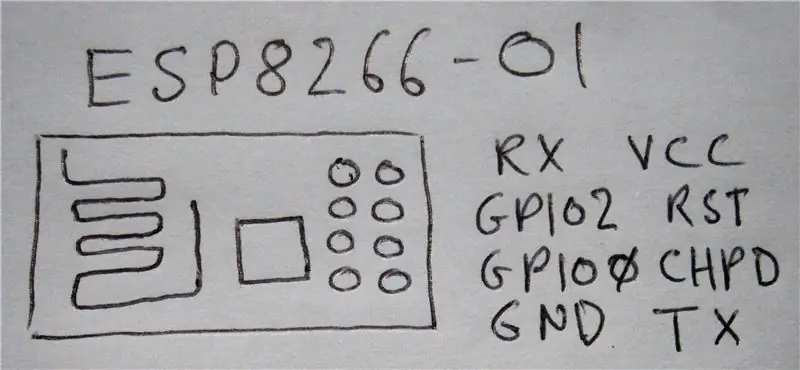 ESP8266-01
RX VCC
GPIO2 RST
GPIO0 CHPD
GND TX